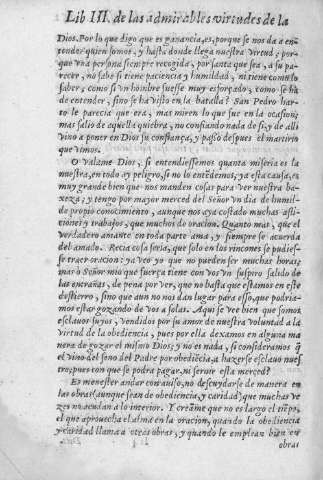 Lib III. de las admirables virtudes de la
Dios. Por lo que digo que es ganancia, es, porque se nos da a en
tender quien somos, y hasta donde llega nuestra virtud; por-
que vna persona siempre recogida, por santa que sea, a su pa
recer, no sabe si tiene paciencia y humildad, ni tiene como lo
saber, como si vn hombre fuesse muy esforçado, como se hà
de entender, sino se ha visto en la batalla? San Pedro har-
to le parecia que era, mas miren lo que fue en la ocasion;
mas salio de aquella quiebra, no confiando nada de si, y de alli
vino a poner en Dios su confiança, y passò despues el martirio
que vimos.
O valame Dios, si entendiessemos quanta miseria es la
nuestra, en todo ay peligro, si no lo entedemos, y a esta causa, es
muy grande bien que nos manden cosas para ver nuestra ba-
xeza, y tengo por mayor merced del Señor vn dia de humil-
de propio conocimiento, aunque nos aya costado muchas afli-
ciones y trabajos, que muchos de oracion. Quanto mas, que el
verdadero amante en toda parte ama, y siempre se acuerda
del amado. Recia cosa seria, que solo en los rincones se pudies-
se traer oracion: ya veo yo que no pueden ser muchas horas;
mas ò Señor mio que fuerça tiene con vos vn suspiro salido de
las entrañas, de pena por ver, que no basta que estamos en este
destierro, sino que aun no nos dan lugar para esso, que podria-
mos estar gozando de vos a solas. Aqui se vee bien que somos
esclauos suyos, vendidos por su amor de nuestra voluntad a la
virtud de la obediencia, pues por ella dexamos en alguna ma
nera de gozar el mismo Dios; y no es nada, si consideramos q̃
el vino del seno del Padre por obediẽcia, a hazerse esclauo nues
tro, pues con que se podra pagar, ni seruir esta merced?
Es menester andar con auiso, no descuydarse de manera en
las obras (aunque sean de obediencia, y caridad) que muchas ve
zes no acudan a lo interior. Y creãme que no es largo el tiẽpo,
el que aprouecha el alma en la oracion, quando la obediencia
y caridad llama a otras obras, y quando le emplean bien en
obras